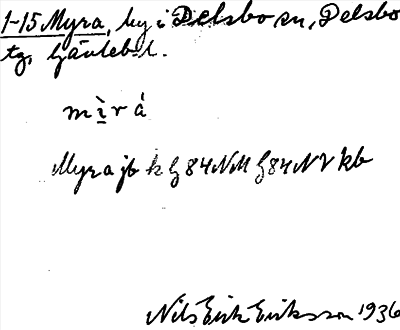 1-15 Myra, by i Delsbo sn, Delsbo
tg, Gävleb. l.
mìrá
Myra jb k G 84 NM G 84 NV kb
Nils Erik Eriksson 1936